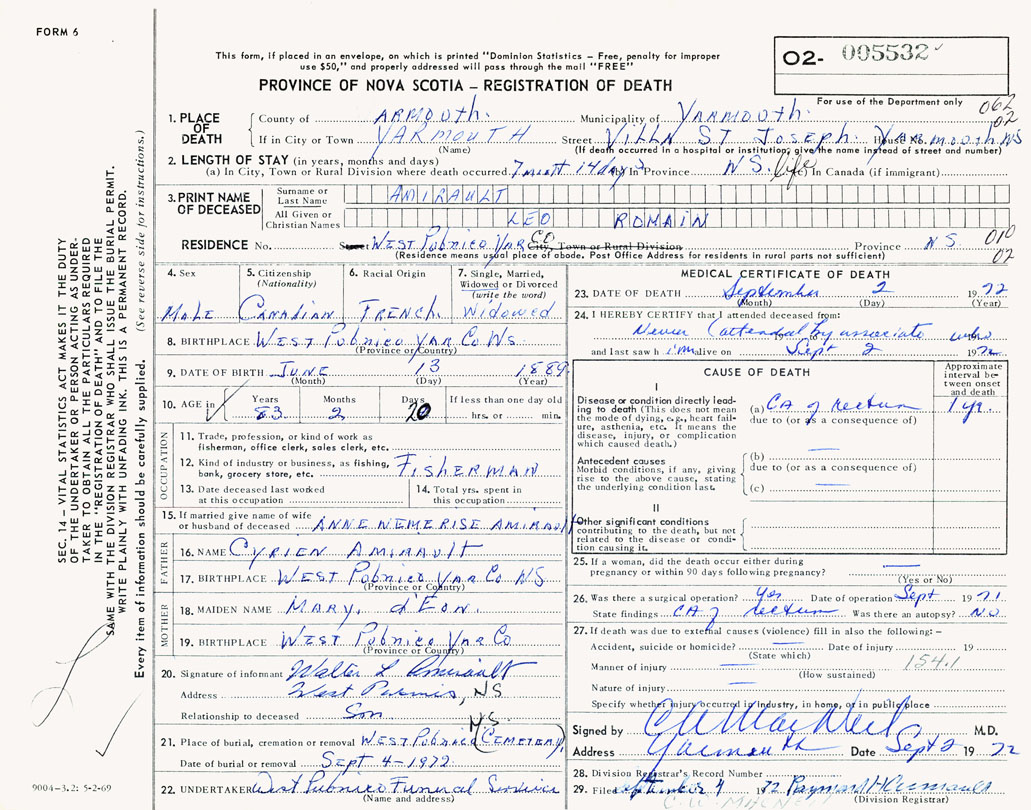 FORM 6
This form, if placed in an envelope, on which is printed "Dominion Statistics – Free, penalty for improper
use $50," and properly addressed will pass through the mail "FREE"
PROVINCE OF NOVA SCOTIA – REGISTRATION OF DEATH
02- 005532
For use of the Department only 062
02
1. PLACE OF DEATH
County of ARMOUTH. Municipality of YARMOUTH.
If in City or Town YARMOUTH Street VILLA ST JOSEPH. House No. YARMOUTH NS
(Name) (If death occurred in a hospital or institution, give the name instead of street and number)
2. LENGTH OF STAY (in years, months and days)
(a) In City, Town or Rural Division where death occurred 7 14 days (b) In Province N.S. life (c) In Canada (if immigrant)
3. PRINT NAME OF DECEASED
Surname or Last Name AMIRAULT
All Given or Christian Names LEO ROMAIN
RESIDENCE No. WEST PUBNICO YAR CO City, Town or Rural Division Province N.S. 010
02
(Residence means usual place of abode. Post Office Address for residents in rural parts not sufficient)
4. Sex 5. Citizenship (Nationality) 6. Racial Origin 7. Single, Married, Widowed or Divorced (write the word)
MALE CANADIAN FRENCH. Widowed
8. BIRTHPLACE WEST PUBNICO YAR CO NS.
(Province or Country)
9. DATE OF BIRTH JUNE 13 1889
(Month) (Day) (Year)
10. AGE Years Months Days If less than one day old
83 2 20 hrs. or min.
OCCUPATION
11. Trade, profession, or kind of work as
fisherman, office clerk, sales clerk, etc.
12. Kind of industry or business, as fishing,
bank, grocery store, etc. FISHERMAN
13. Date deceased last worked
at this occupation
14. Total yrs. spent in
this occupation
15. If married give name of wife
or husband of deceased ANNE NEMERISE AMIRAULT
FATHER
16. NAME CYRIEN AMIRAULT
17. BIRTHPLACE WEST PUBNICO YAR CO NS
(Province or Country)
MOTHER
18. MAIDEN NAME MARY, d'EON.
19. BIRTHPLACE WEST PUBNICO YAR CO
(Province or Country)
20. Signature of informant Walter L Amirault
Address West Pubnico, NS
Relationship to deceased Son
21. Place of burial, cremation or removal WEST PUBNICO N.S. (CEMETERY)
Date of burial or removal SEPT 4-1972
22. UNDERTAKER West Pubnico Funeral Service
(Name and address)
MEDICAL CERTIFICATE OF DEATH
23. DATE OF DEATH September 2 1972
(Month) (Day) (Year)
24. I HEREBY CERTIFY that I attended deceased from:
Never (attended by associate who
19
and last saw h im alive on Sept 2 1972
CAUSE OF DEATH
Approximate interval between onset and death
I
Disease or condition directly leading
to death (This does not mean
the mode of dying, e.g., heart failure,
asthenia, etc. It means the
disease, injury, or complication
which caused death.)
(a) CA of rectum 1 yr.
due to (or as a consequence of)
Antecedent causes
Morbid conditions, if any, giving
rise to the above cause, stating
the underlying condition last.
(b)
due to (or as a consequence of)
(c)
II
Other significant conditions
contributing to the death, but not
related to the disease or condition
causing it.
25. If a woman, did the death occur either during
pregnancy or within 90 days following pregnancy?
(Yes or No)
26. Was there a surgical operation? yes Date of operation Sept 1971
State findings CA of rectum Was there an autopsy? NO
27. If death was due to external causes (violence) fill in also the following:–
Accident, suicide or homicide? Date of injury 19
(State which)
Manner of injury 154.1
(How sustained)
Nature of injury
Specify whether injury occurred in industry, in home, or in public place
Signed by M.D.
Address Yarmouth Date Sept 2 1972
28. Division Registrar's Record Number
29. Filed September 4 1972
(Division Registrar)
SEC. 14 – VITAL STATISTICS ACT MAKES IT THE DUTY
OF THE UNDERTAKER OR PERSON ACTING AS UNDER-
TAKER TO OBTAIN ALL THE PARTICULARS REQUIRED
IN THE "REGISTRATION OF DEATH" AND TO FILE THE
SAME WITH THE DIVISION REGISTRAR WHO SHALL ISSUE THE BURIAL PERMIT.
WRITE PLAINLY WITH UNFADING INK. THIS IS A PERMANENT RECORD.
Every item of information should be carefully supplied. (See reverse side for instructions.)
9004-3.2: 5-2-69